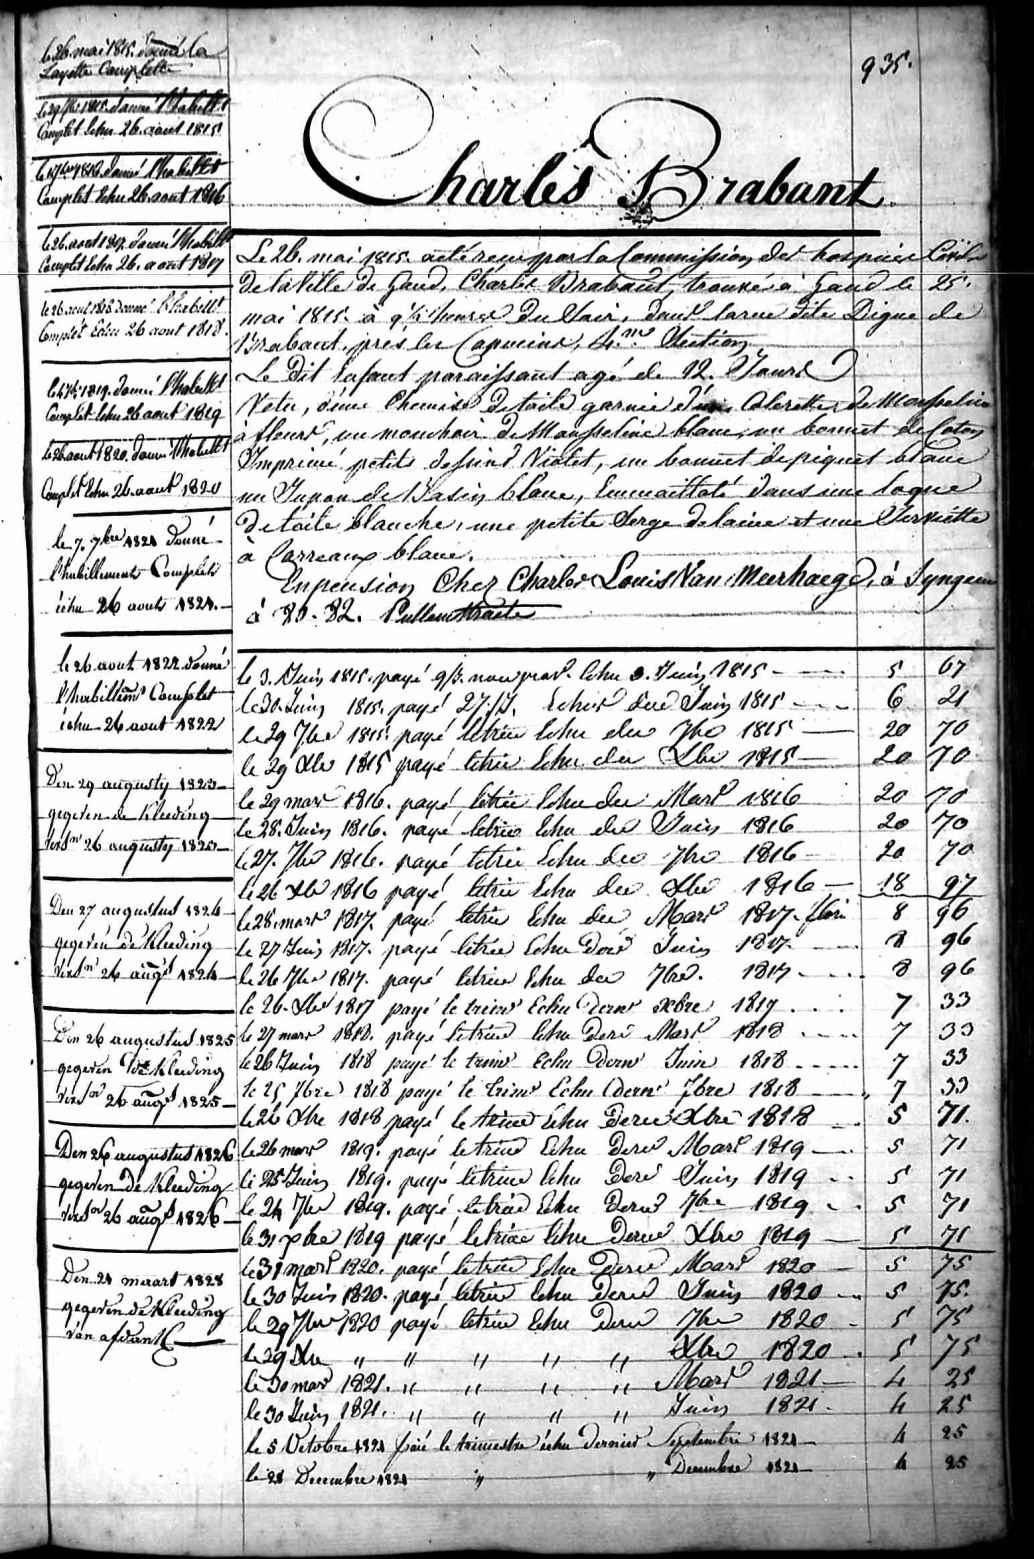 935.
Charles Brabant
le 26 mai 1815. donné la
Layette Complette
le 29 7bre 1815. donné l'habillt
Complet Echu 26. aout 1815
le 17 1816. donné l'habillt
Complet Echu 26. aout 1816
le 26. aout 1817. donné l'habillt
Complet Echu 26. aout 1817
le 26 aout 1818 donné l'habillt
Complet Echu 26 aout 1818.
le 4 7bre 1819. donné l'habillt
Complet Echu 26 aout 1819
le 26 aout 1820. donné l'habillt
Complet Echu 26. aout 1820
le 7. 7bre 1821 donné
l'habillement Complet
échu 26 aout 1821.
le 26 aout 1822 donné
l'habillemt Complet
échu 26 aout 1822
Den 29 augusty 1823
gegeven de Kleeding
26 augusty 1823
Den 27 augustus 1824
gegeven de Kleeding
26 augs 1824
Den 26 augustus 1825
gegeven de Kleeding
26 augs 1825
Den 26 augustus 1826
gegeven de Kleeding
26 augs 1826
Den 21 maart 1828
gegeven de Kleeding
van afdank
Le 26. mai 1815. a été reçu par la Commission des hospices Civils
de la Ville de Gand, Charles Brabant, trouvé à Gand le 25.
mai 1815. à 9 1/2 heures du Soir, dans la rue dite Digue de
Brabant, près les Capucins, 4.me Section
Le dit Enfant paraissant agé de 12. Jours
Vetu, d'une Chemise de toile garnie d'un Colerette de Mousseline
à fleurs, un mouchoir de Mousseline blanc, un bonnet de Coton
Imprimé petits dessins Violet, un bonnet de piquet blanc
un Jupon de Basin blanc, Emmailloté dans une loque
de toile blanche, une petite Serge de laine et une Serviette
à Carreaux blanc.
En pension Chez Charles Louis Van Meerhaege, à Syngem
à 82. Pullem Straete
le 3. Juin 1815. payé 9/3. Echu 3. Juin 1815 5 67
le 30. Juin 1815. payé 27. Echus Juin 1815 6 21
le 29 7bre 1815. payé le trire Echu der 7bre 1815 20 70
le 29 Xbre 1815 payé le trire Echu der Xbre 1815 20 70
le 29 mars 1816. payé le trire Echu der Mars 1816 20 70
le 28. Juin 1816. payé le trire Echu der Juin 1816 20 70
le 27. 7bre 1816. payé le trire Echu der 7bre 1816 20 70
le 26 Xbre 1816 payé le trire Echu der Xbre 1816 18 97
le 28. mars 1817. payé le trire Echu der Mars 1817. flori 8 96
le 27 Juin 1817. payé le trire Echu der Juin 1817. 8 96
le 26 7bre 1817. payé le trire Echu der 7bre. 1817 8 96
le 26. Xbre 1817 payé le trimre Echu dernr Xbre 1817 7 33
le 27 mars 1818. payé le trire Echu der Mars 1818 7 33
le 26 Juin 1818 payé le trimre Echu dernr Juin 1818 7 33
le 25 7bre 1818 payé le trimre Echu dernr 7bre 1818 7 33
le 26 Xbre 1818 payé le trire Echu der Xbre 1818 5 71.
le 26 mars 1819. payé le trire Echu der Mars 1819 5 71
le 25 Juin 1819. payé le trire Echu der Juin 1819 5 71
le 24 7bre 1819. payé le trire Echu der 7bre 1819 5 71
le 31 Xbre 1819 payé le trire Echu der Xbre 1819 5 71
le 31 mars 1820. payé le trire Echu der Mars 1820 5 75
le 30 Juin 1820. payé le trire Echu der Juin 1820 5 75.
le 29 7bre 1820 payé le trire Echu der 7bre 1820 5 75
le 29 Xbre " " " " " Xbre 1820 5 75
le 30 mars 1821. " " " " " Mars 1821 4 25
le 30 Juin 1821. " " " " " Juin 1821. 4 25
le 5 Octobre 1821 paié le trimestre échu dernier Septembre 1821 4 25
le 28 Decembre 1821 " " Decembre 1821 4 25